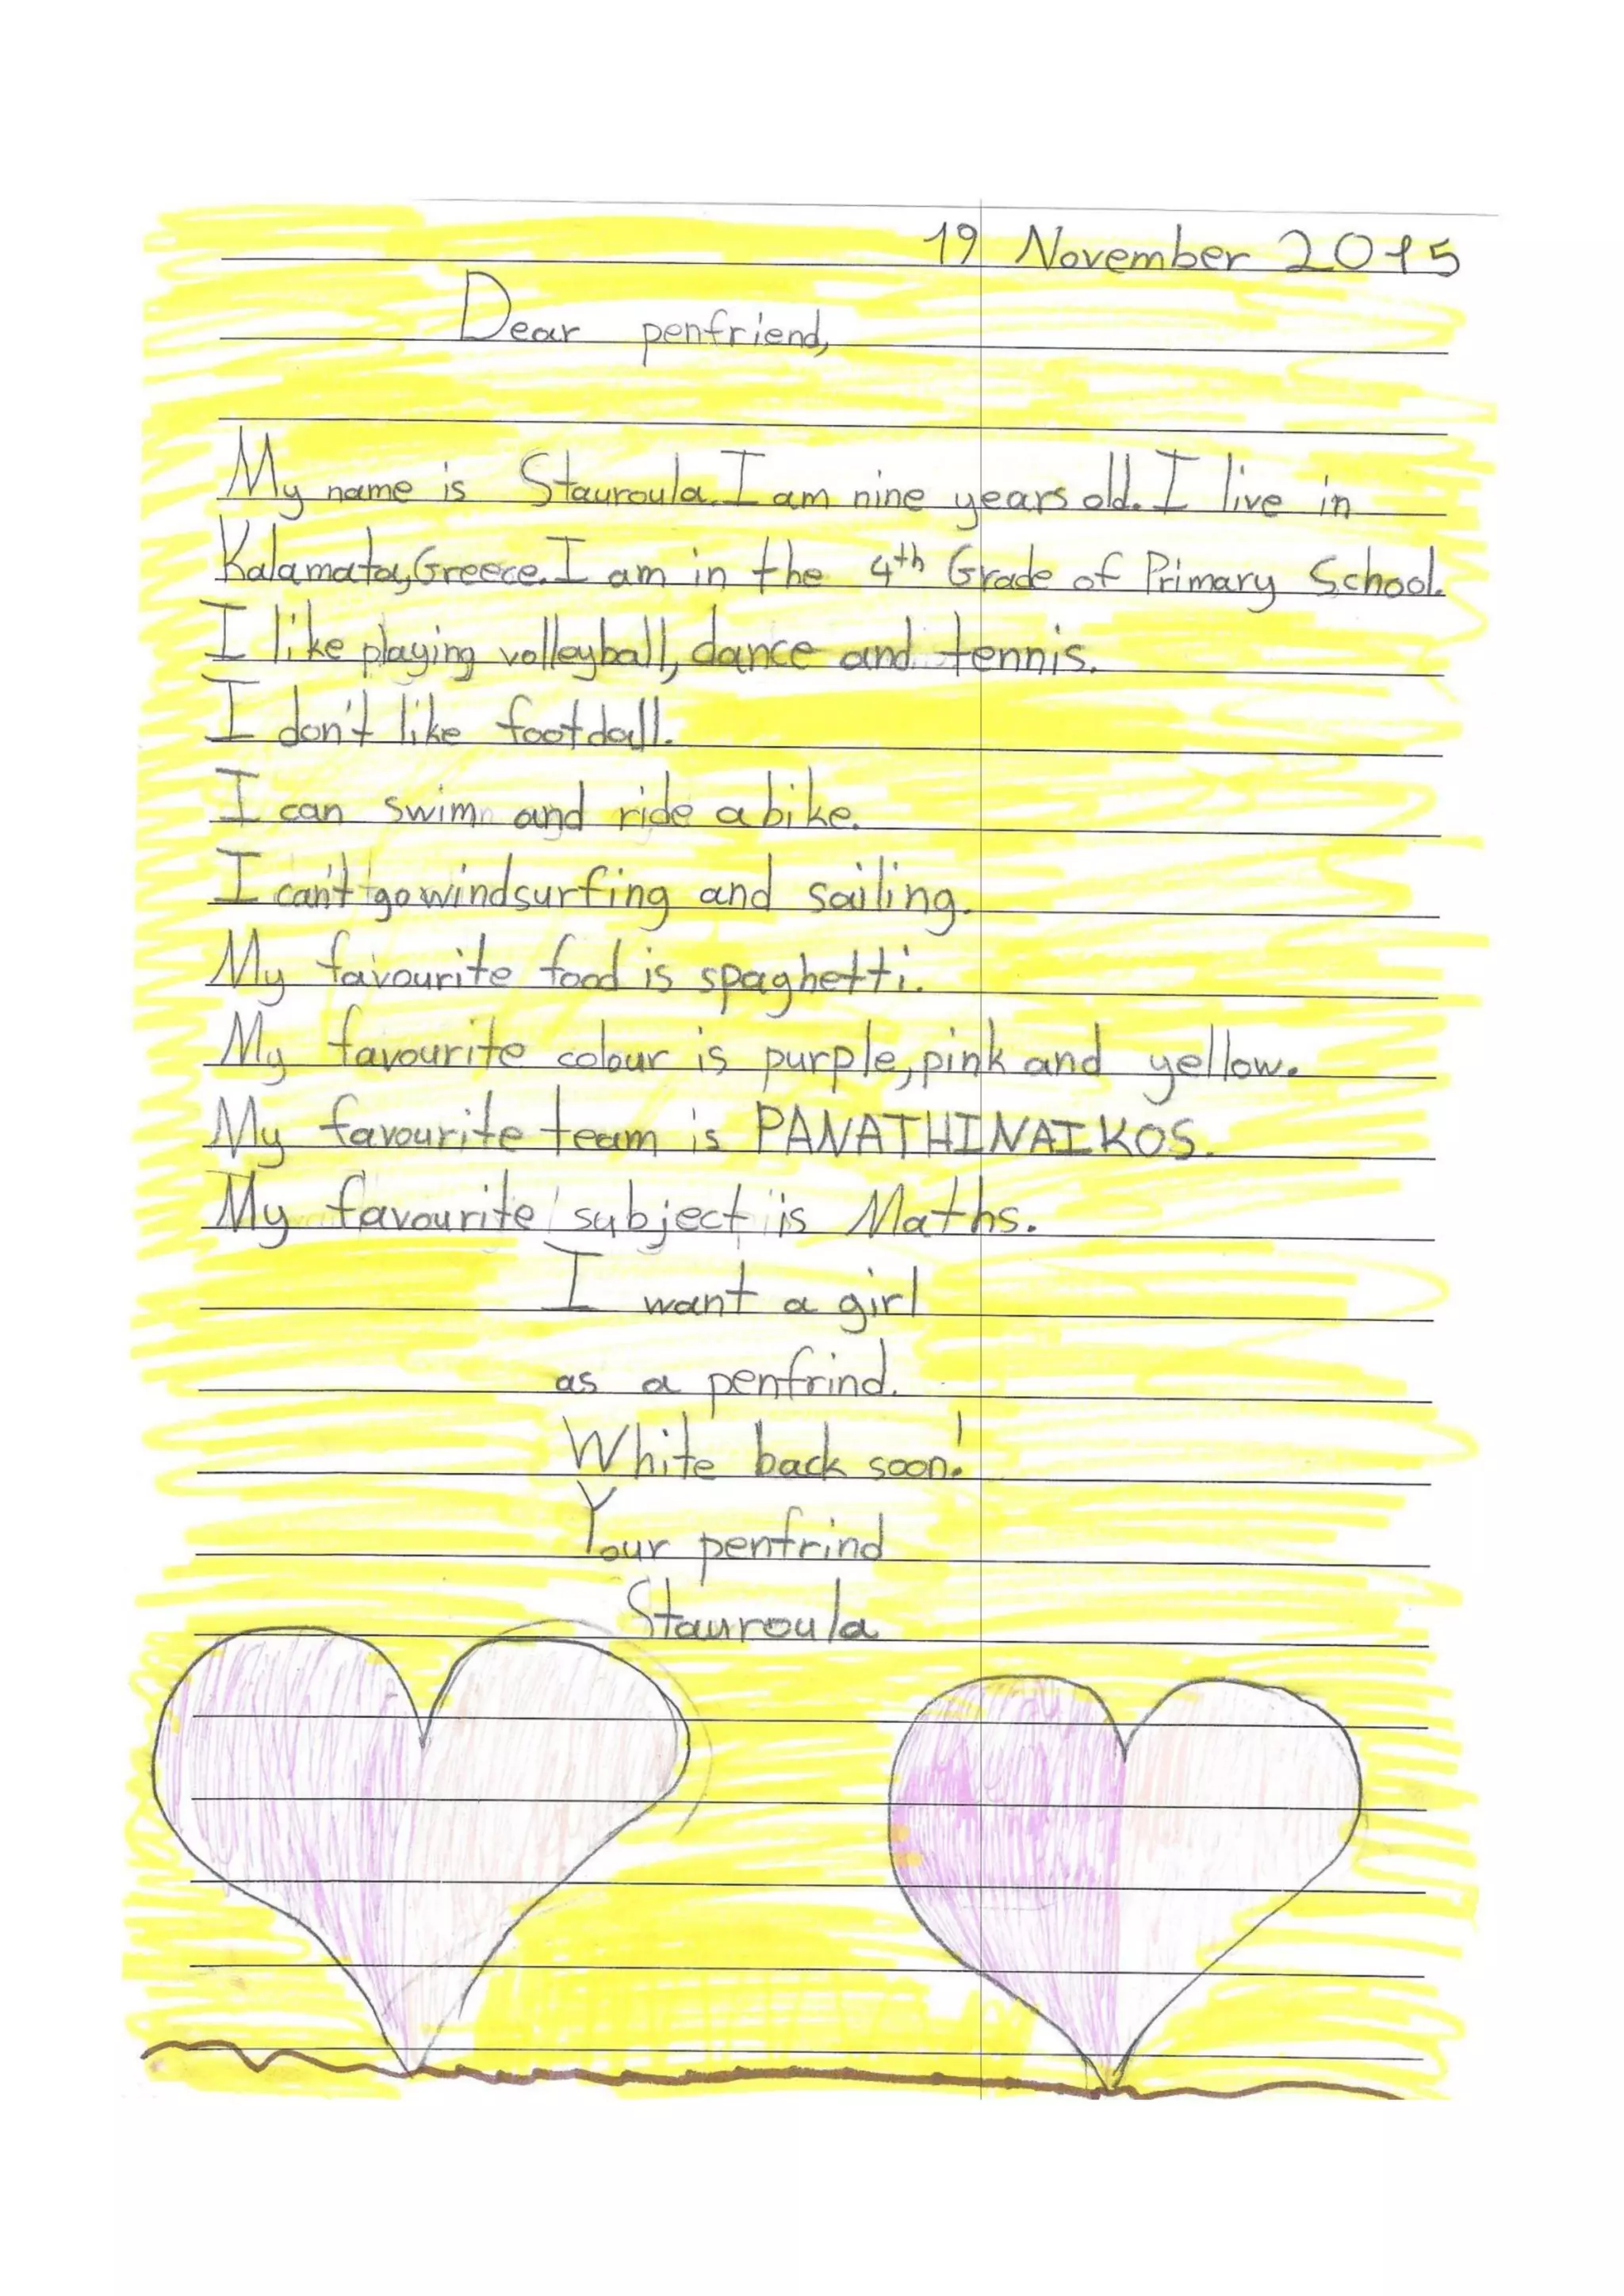 19 November 2015
Dear penfriend,
My name is Stauroula. I am nine years old. I live in
Kalamata, Greece. I am in the 4th Grade of Primary School.
I like playing volleyball, dance and tennis.
I don't like footdall.
I can swim and ride a bike.
I can't go windsurfing and sailing.
My favourite food is spaghetti.
My favourite colour is purple, pink and yellow.
My favourite team is PANATHINAIKOS.
My favourite subject is Maths.
I want a girl
as a penfrind.
White back soon!
Your penfrind
Stauroula